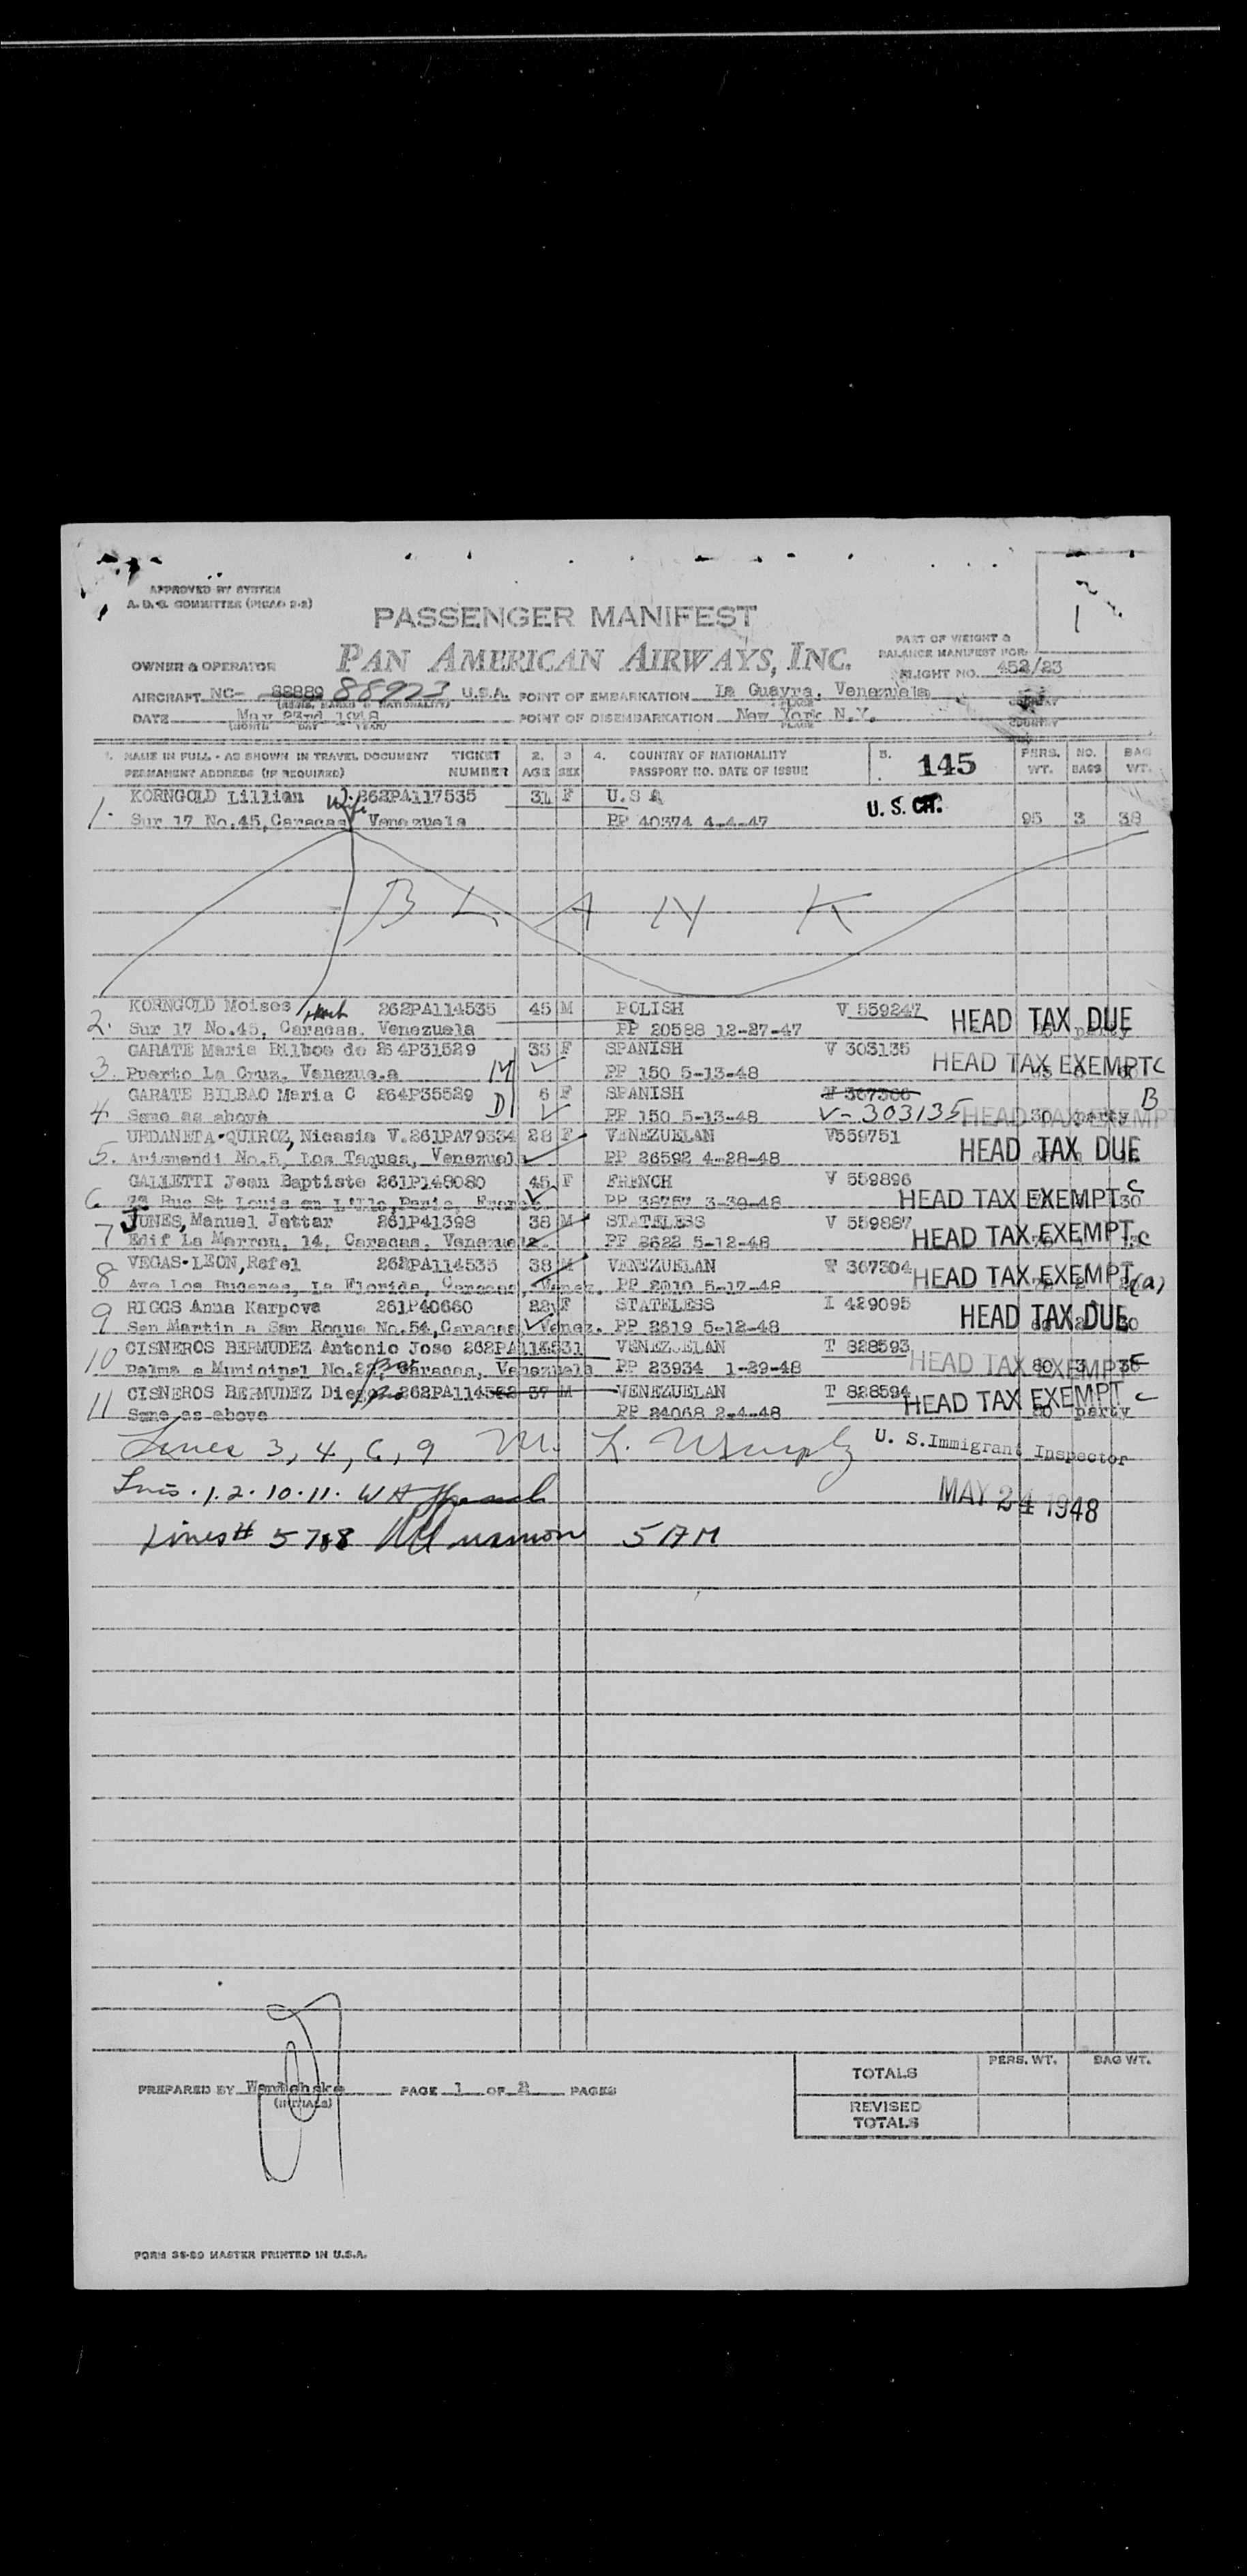 APPROVED BY SYSTEM
A. D. C. COMMITTEE (PICAO 2-2)
PASSENGER MANIFEST
1
PAN AMERICAN AIRWAYS, INC.
PART OF WEIGHT &
BALANCE MANIFEST FOR:
OWNER & OPERATOR
FLIGHT NO. 452/23
AIRCRAFT NC- 88889 88923 U.S.A. POINT OF EMBARKATION La Guayra, Venezuela
DATE May 23rd 1948 POINT OF DISEMBARKATION New York N.Y.
(MONTH DAY YEAR) PLACE COUNTRY
1. NAME IN FULL - AS SHOWN IN TRAVEL DOCUMENT TICKET 2. 3 4. COUNTRY OF NATIONALITY 5. 145 PERS. NO. BAG
PERMANENT ADDRESS (IF REQUIRED) NUMBER AGE SEX PASSPORT NO. DATE OF ISSUE WT. BAGS WT.
KORNGOLD Lillian Wife 262PA117535 31 F U.S A U. S. CIT.
1. Sur 17 No.45, Caracas Venezuela PP 40374 4-4-47 95 3 38
BLANK
KORNGOLD Moises 262PA114535 45 M POLISH V 559247 HEAD TAX DUE
2. Sur 17 No.45, Caracas. Venezuela PP 20588 12-27-47 party
GARATE Maria Bilboa de 264P31529 33 F SPANISH V 303135 HEAD TAX EXEMPT C
3. Puerto La Cruz. Venezue.a M PP 150 5-13-48
GARATE BILBAO Maria C 264P35529 6 F SPANISH T 367366 B
4. Same as above D PP 150 5-13-48 V-303135 HEAD TAX EXEMPT 30 party
URDANETA-QUIROZ, Nicasia V. 261PA79334 28 F VENEZUELAN V559751 HEAD TAX DUE
5. Arismendi No.5, Los Taques, Venezuela PP 26592 4-28-48
GALLETTI Jean Baptiste 261P148080 45 F FRENCH V 559896 HEAD TAX EXEMPT C
6. Rue St Louis en L'Ile, Paris, France. PP 38757 3-30-48 30
JUNES, Manuel Jattar 261P41398 38 M STATELESS V 559887 HEAD TAX EXEMPT C
7 Edif La Marron, 14, Caracas. Venezuela. PP 2622 5-12-48
VEGAS-LEON, Rafel 262PA114535 38 M VENEZUELAN T 367304 HEAD TAX EXEMPT (a)
8 Ave Los Bucares, La Florida, Caracas, Venez. PP 2010 5-17-48
RIGGS Anna Karpova 261P40660 22 F STATELESS I 429095 HEAD TAX DUE
9 San Martin a San Roque No.54, Caracas, Venez. PP 2619 5-12-48
CISNEROS BERMUDEZ Antonio Jose 262PA114531 VENEZUELAN T 828593 HEAD TAX EXEMPT
10 Palma a Municipal No.27, Caracas, Venezuela PP 23934 1-29-48 80 3
CISNEROS BERMUDEZ Diego 262PA114532 37 M VENEZUELAN T 828594 HEAD TAX EXEMPT C
11 Same as above PP 24068 2-4-48 party
Lines 3, 4, 6, 9 M. L. Murphy U. S. Immigrant Inspector
Lns. 1.2.10.11. W H
MAY 24 1948
Lines # 5 7&8 5 AM
TOTALS PERS. WT. BAG WT.
PREPARED BY PAGE 1 OF 2 PAGES
(INITIALS)
REVISED
TOTALS
FORM 38-89 MASTER PRINTED IN U.S.A.